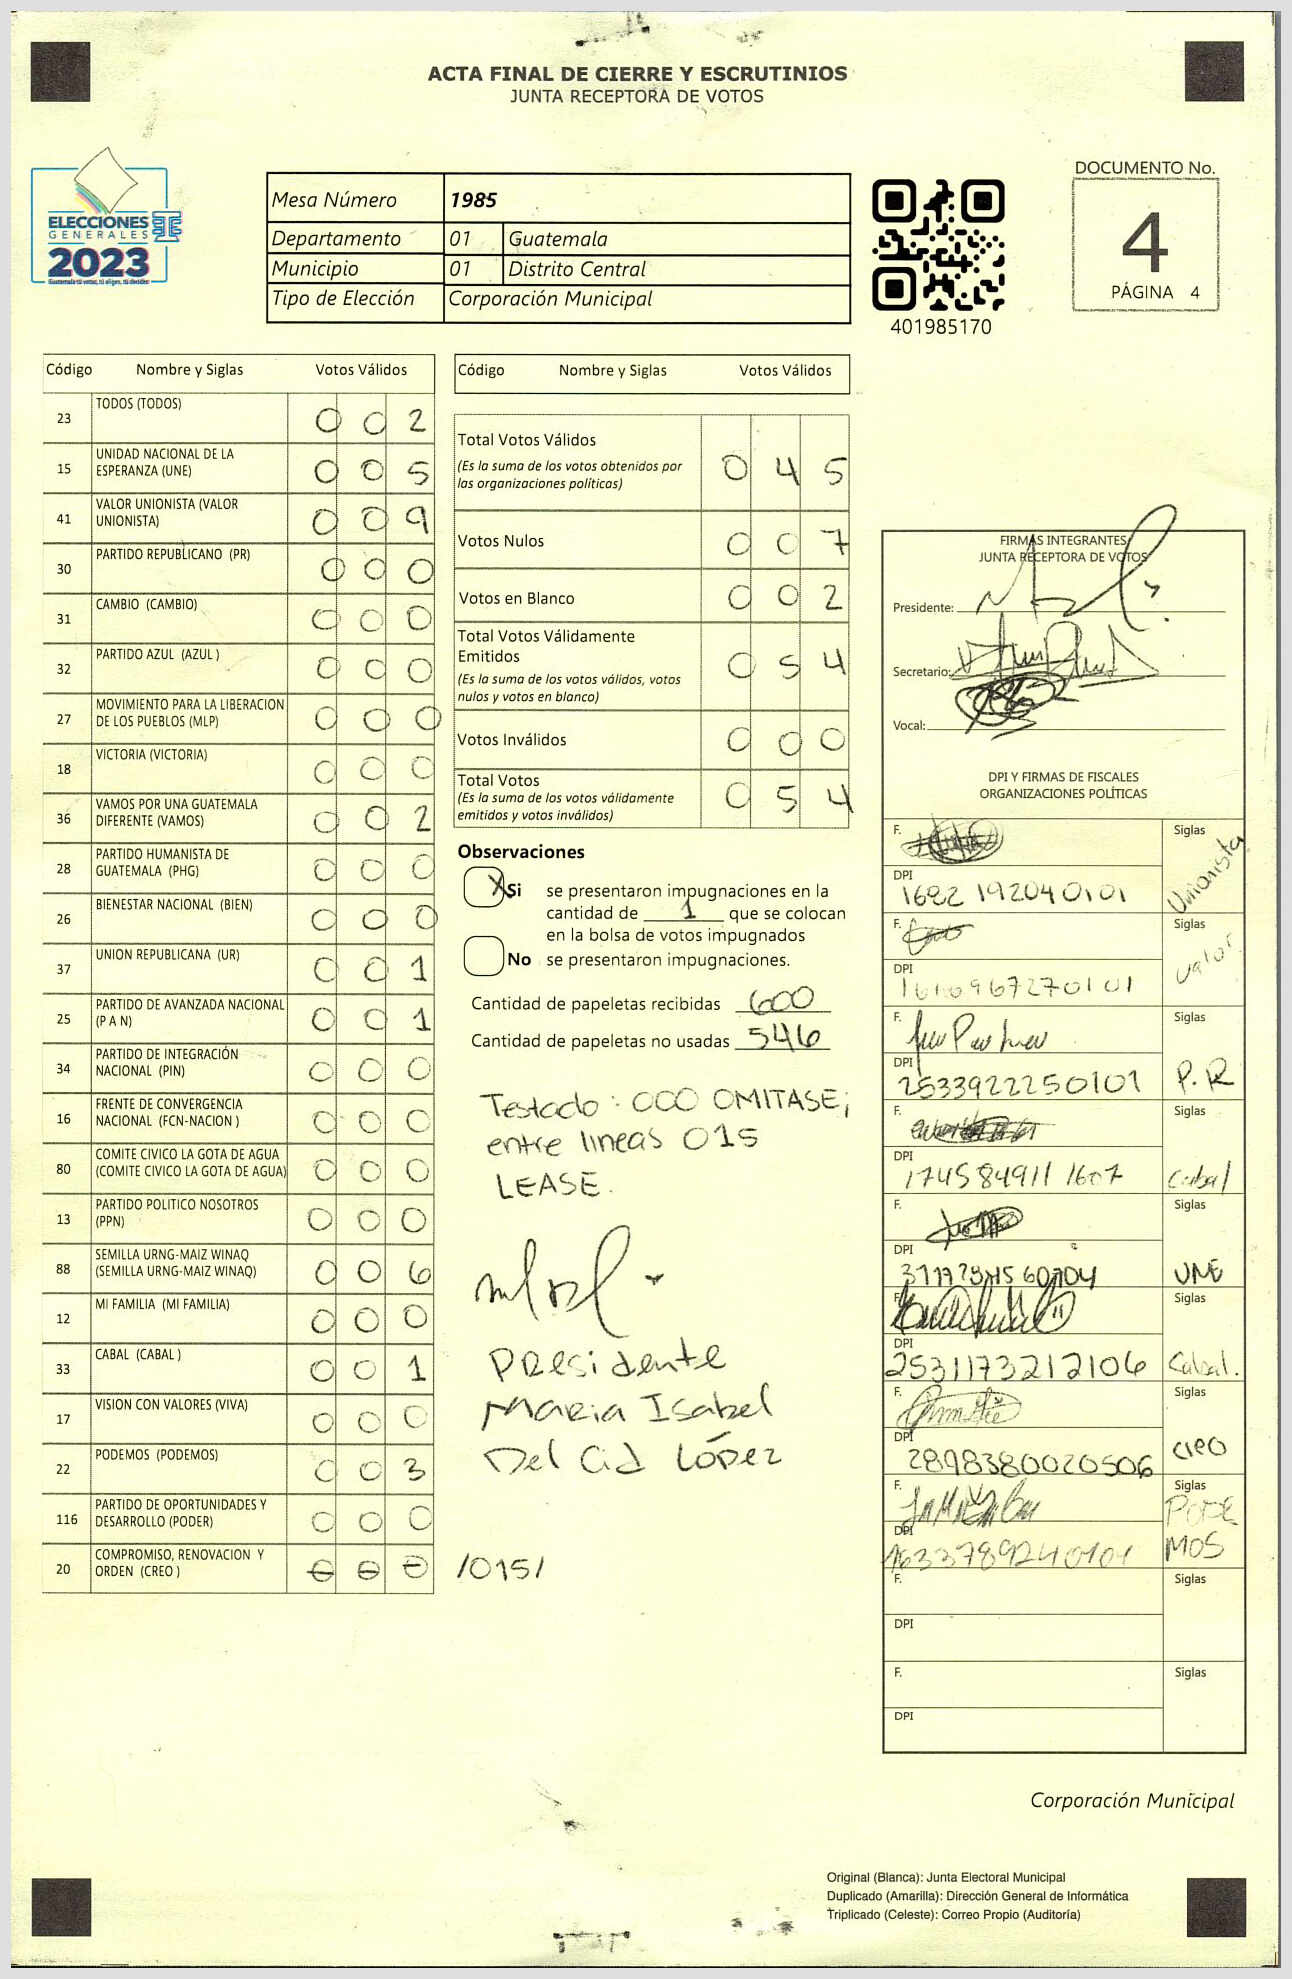 ACTA FINAL DE CIERRE Y ESCRUTINIOS
JUNTA RECEPTORA DE VOTOS
ELECCIONES
GENERALES
2023
Guatemala tú votas, tú eliges, tú decides
Mesa Número 1985
Departamento 01 Guatemala
Municipio 01 Distrito Central
Tipo de Elección Corporación Municipal
401985170
DOCUMENTO No.
4
PÁGINA 4
Código Nombre y Siglas Votos Válidos
23 TODOS (TODOS) 0 0 2
15 UNIDAD NACIONAL DE LA
ESPERANZA (UNE) 0 0 5
41 VALOR UNIONISTA (VALOR
UNIONISTA) 0 0 9
30 PARTIDO REPUBLICANO (PR) 0 0 0
31 CAMBIO (CAMBIO) 0 0 0
32 PARTIDO AZUL (AZUL ) 0 0 0
27 MOVIMIENTO PARA LA LIBERACION
DE LOS PUEBLOS (MLP) 0 0 0
18 VICTORIA (VICTORIA) 0 0 0
36 VAMOS POR UNA GUATEMALA
DIFERENTE (VAMOS) 0 0 2
28 PARTIDO HUMANISTA DE
GUATEMALA (PHG) 0 0 0
26 BIENESTAR NACIONAL (BIEN) 0 0 0
37 UNION REPUBLICANA (UR) 0 0 1
25 PARTIDO DE AVANZADA NACIONAL
(P A N) 0 0 1
34 PARTIDO DE INTEGRACIÓN
NACIONAL (PIN) 0 0 0
16 FRENTE DE CONVERGENCIA
NACIONAL (FCN-NACION ) 0 0 0
80 COMITE CIVICO LA GOTA DE AGUA
(COMITE CIVICO LA GOTA DE AGUA) 0 0 0
13 PARTIDO POLITICO NOSOTROS
(PPN) 0 0 0
88 SEMILLA URNG-MAIZ WINAQ
(SEMILLA URNG-MAIZ WINAQ) 0 0 6
12 MI FAMILIA (MI FAMILIA) 0 0 0
33 CABAL (CABAL ) 0 0 1
17 VISION CON VALORES (VIVA) 0 0 0
22 PODEMOS (PODEMOS) 0 0 3
116 PARTIDO DE OPORTUNIDADES Y
DESARROLLO (PODER) 0 0 0
20 COMPROMISO, RENOVACION Y
ORDEN (CREO ) 0 0 0 /015/
Código Nombre y Siglas Votos Válidos
Total Votos Válidos
(Es la suma de los votos obtenidos por
las organizaciones políticas) 0 4 5
Votos Nulos 0 0 7
Votos en Blanco 0 0 2
Total Votos Válidamente
Emitidos
(Es la suma de los votos válidos, votos
nulos y votos en blanco) 0 5 4
Votos Inválidos 0 0 0
Total Votos
(Es la suma de los votos válidamente
emitidos y votos inválidos) 0 5 4
Observaciones
X Si se presentaron impugnaciones en la
cantidad de 1 que se colocan
en la bolsa de votos impugnados
No se presentaron impugnaciones.
Cantidad de papeletas recibidas 600
Cantidad de papeletas no usadas 546
Testado : 000 OMITASE;
entre lineas 015
LEASE.
Presidente
Maria Isabel
Del Cid López
FIRMAS INTEGRANTES
JUNTA RECEPTORA DE VOTOS
Presidente:
Secretario:
Vocal:
DPI Y FIRMAS DE FISCALES
ORGANIZACIONES POLÍTICAS
F. Siglas
DPI 1682 192040101 Unionista
F. Siglas
DPI valor
F. Siglas
DPI 2533922250101 P.R
F. Siglas
DPI 174584911 1607 Cabal
F. Siglas
DPI UNE
F. Siglas
DPI 2531173212106 Cabal.
F. Siglas
DPI 2898380020506 creo
F. Siglas
DPI 1633789240101 PODE
MOS
F. Siglas
DPI
F. Siglas
DPI
Corporación Municipal
Original (Blanca): Junta Electoral Municipal
Duplicado (Amarilla): Dirección General de Informática
Triplicado (Celeste): Correo Propio (Auditoría)